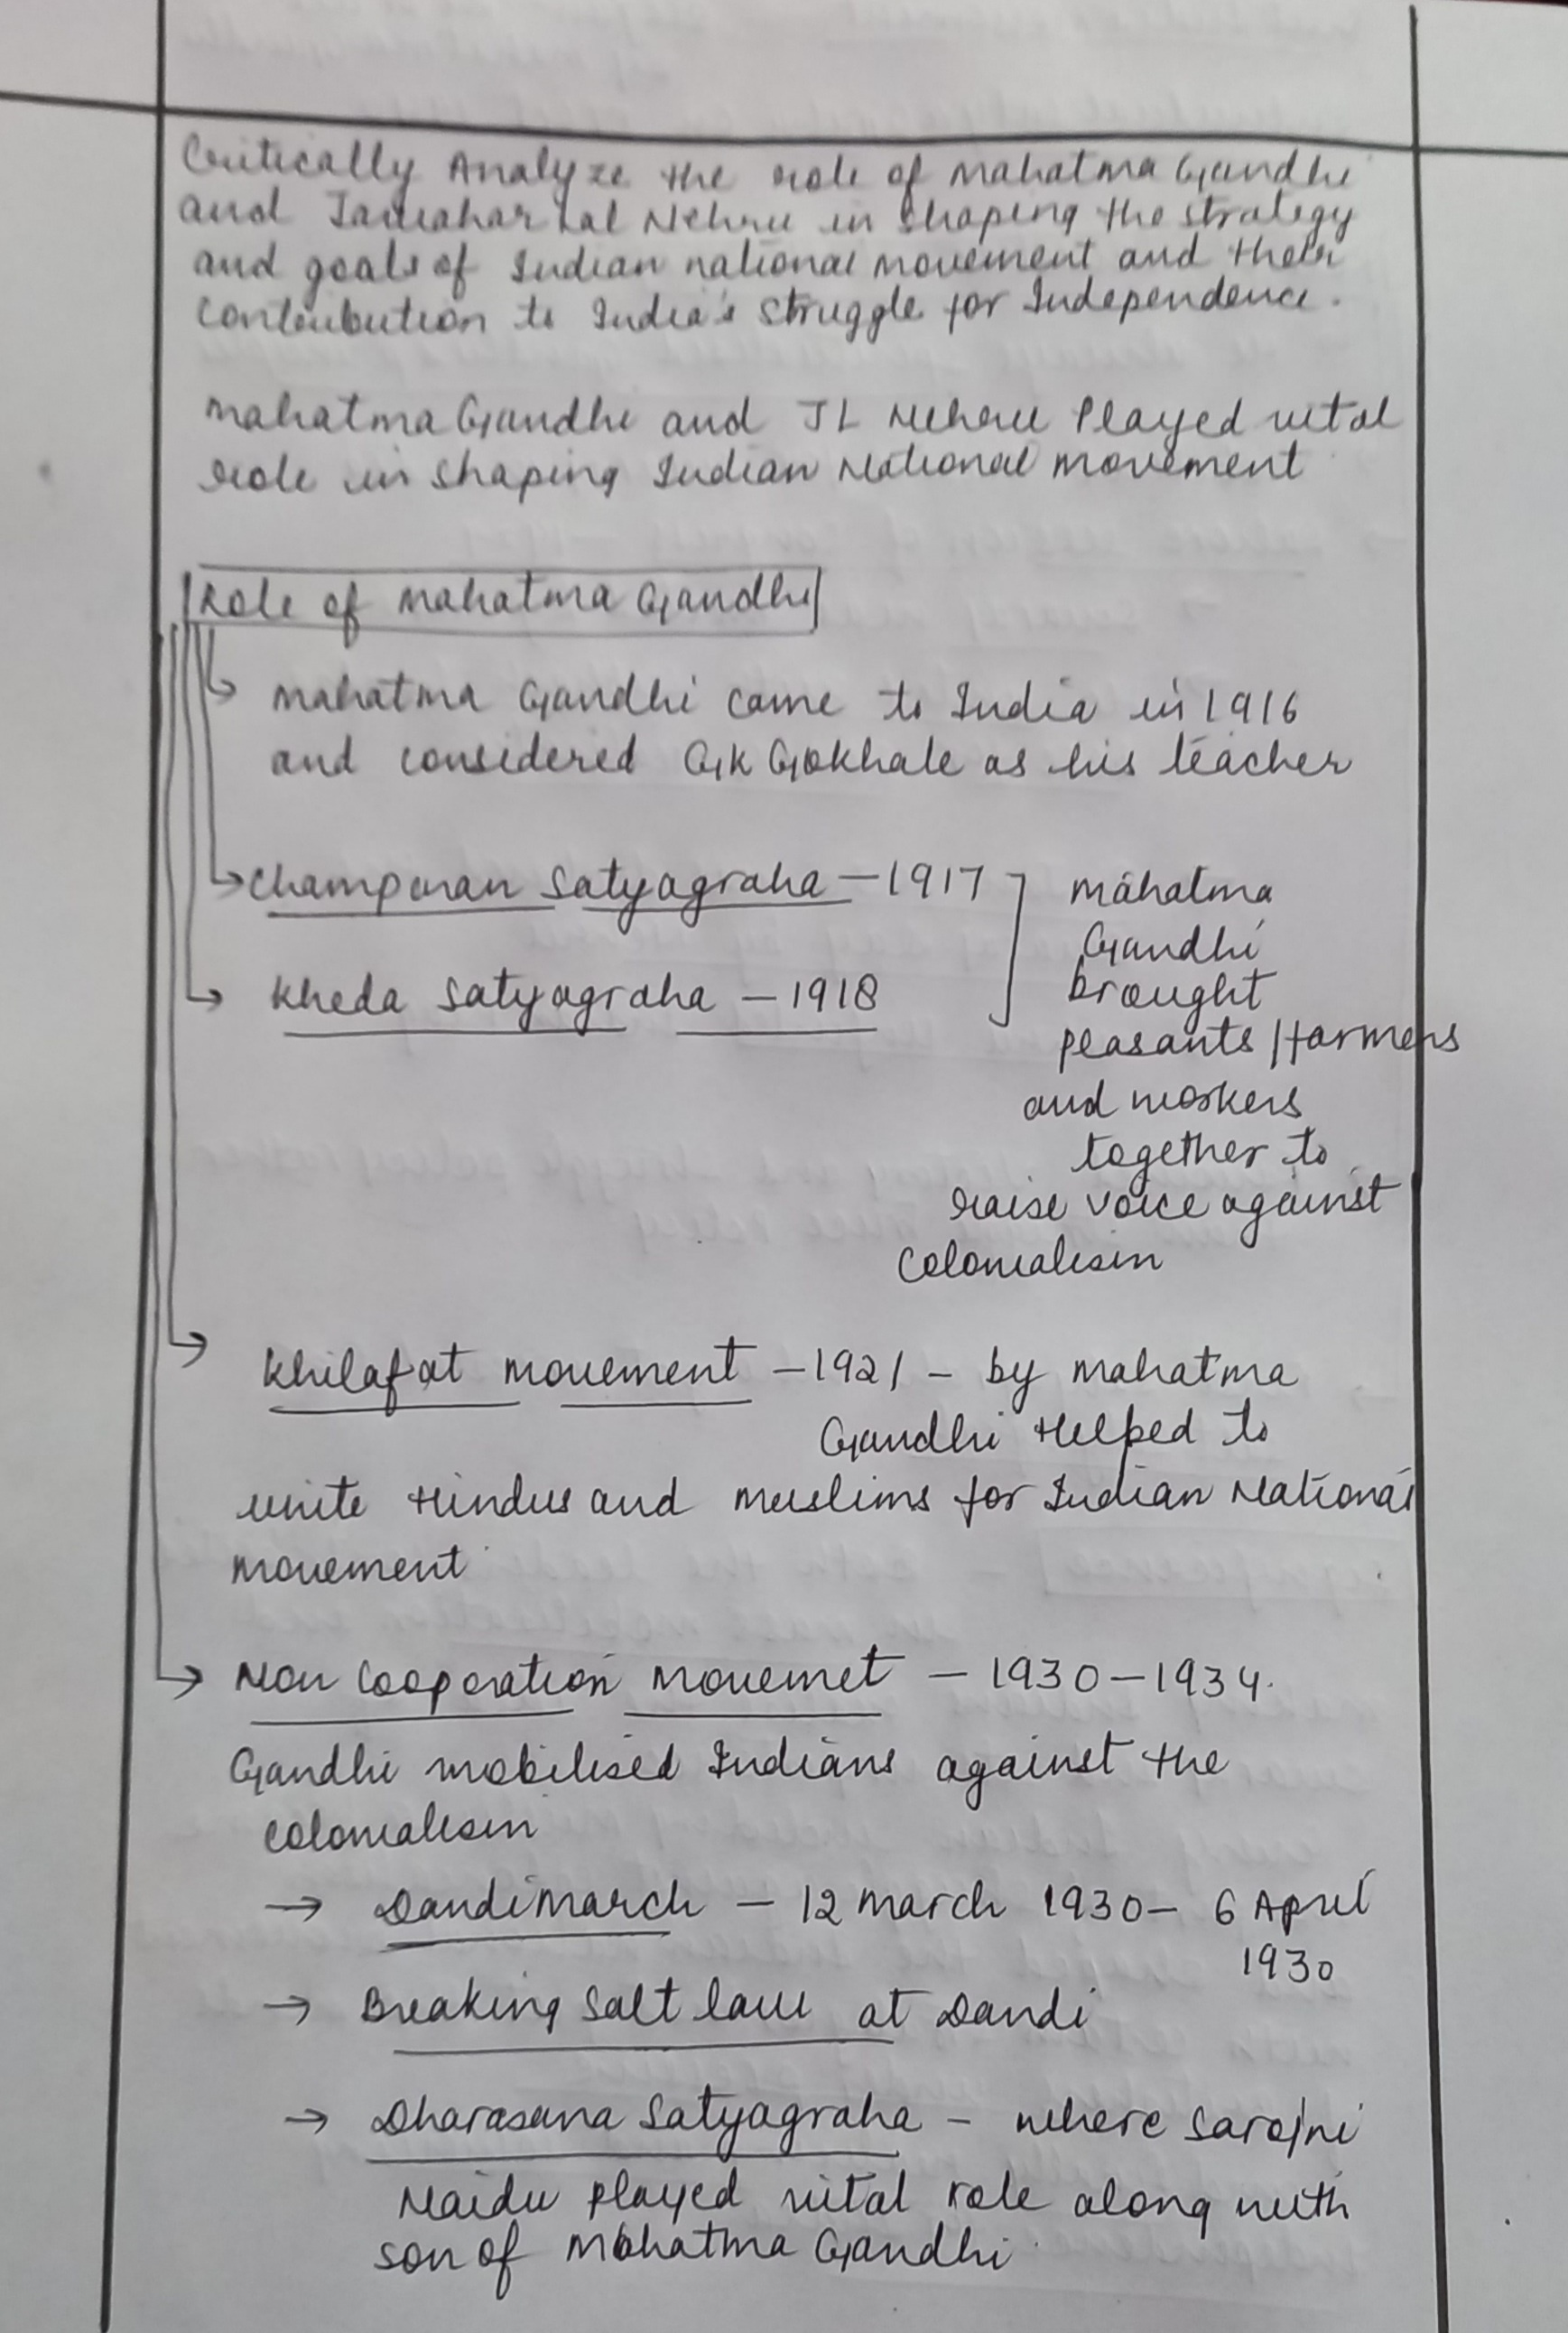 Critically Analyze the role of Mahatma Gandhi
and Jawahar Lal Nehru in shaping the strategy
and goals of Indian national movement and their
contribution to India's struggle for Independence.
Mahatma Gandhi and JL Nehru Played vital
role in shaping Indian National movement
Role of Mahatma Gandhi
Mahatma Gandhi came to India in 1916
and considered GK Gokhale as his teacher
Champaran Satyagraha - 1917
Kheda Satyagraha - 1918
Mahatma
Gandhi
brought
peasants/farmers
and workers
together to
raise voice against
colonialism
Khilafat movement - 1921 - by Mahatma
Gandhi Helped to
unite Hindus and Muslims for Indian National
movement
Non Cooperation Movemet - 1930-1934.
Gandhi mobilised Indians against the
colonialism
→ Dandi March - 12 March 1930 - 6 April
1930
→ Breaking Salt law at Dandi
→ Dharasana Satyagraha - where Sarojni
Naidu played vital role along with
son of Mahatma Gandhi